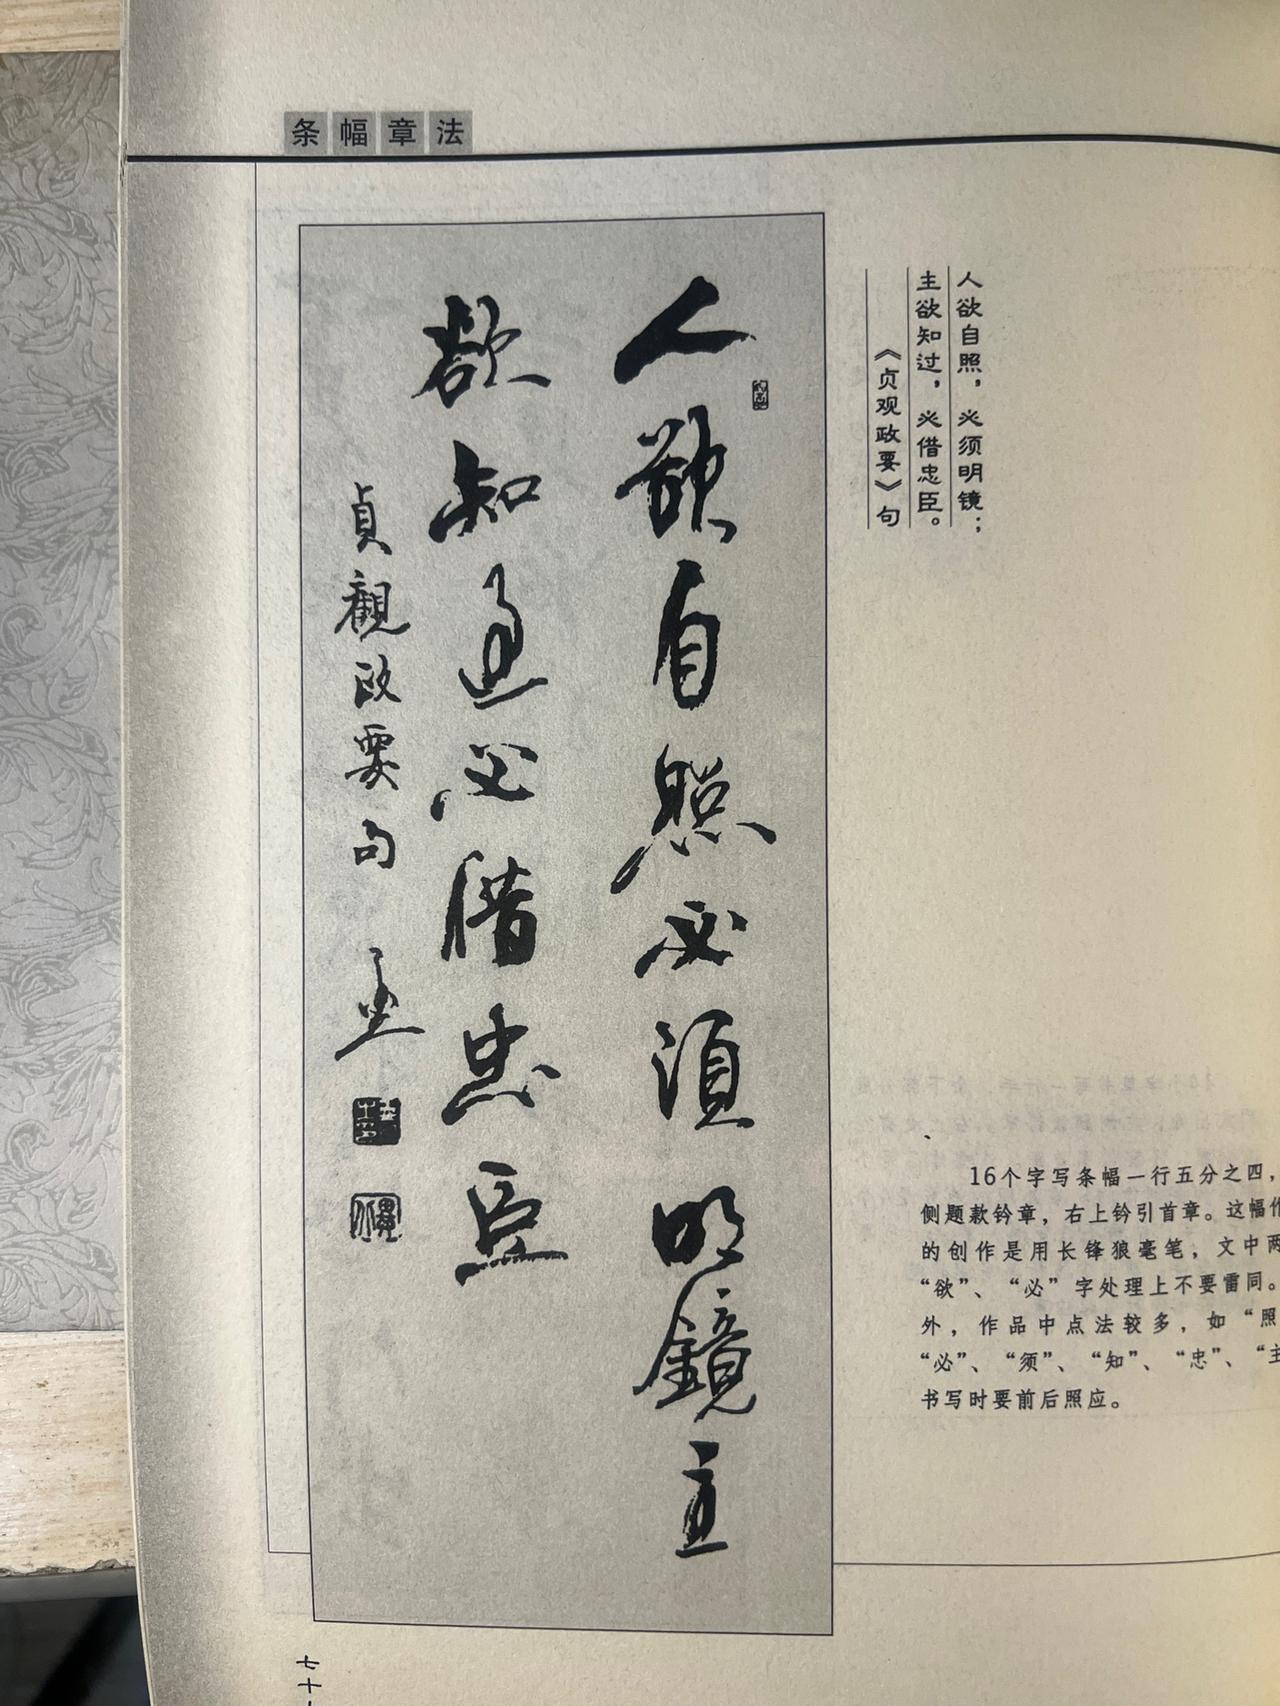 条幅章法
人欲自照，必须明镜；
主欲知过，必借忠臣。
《贞观政要》句
人欲自照必须明镜主
欲知過必借忠臣
貞觀政要句
16个字写条幅一行五分之四，
侧题款钤章，右上钤引首章。这幅作
的创作是用长锋狼毫笔，文中两
“欲”、“必”字处理上不要雷同。
外，作品中点法较多，如“照
“必”、“须”、“知”、“忠”、“主
书写时要前后照应。
七十